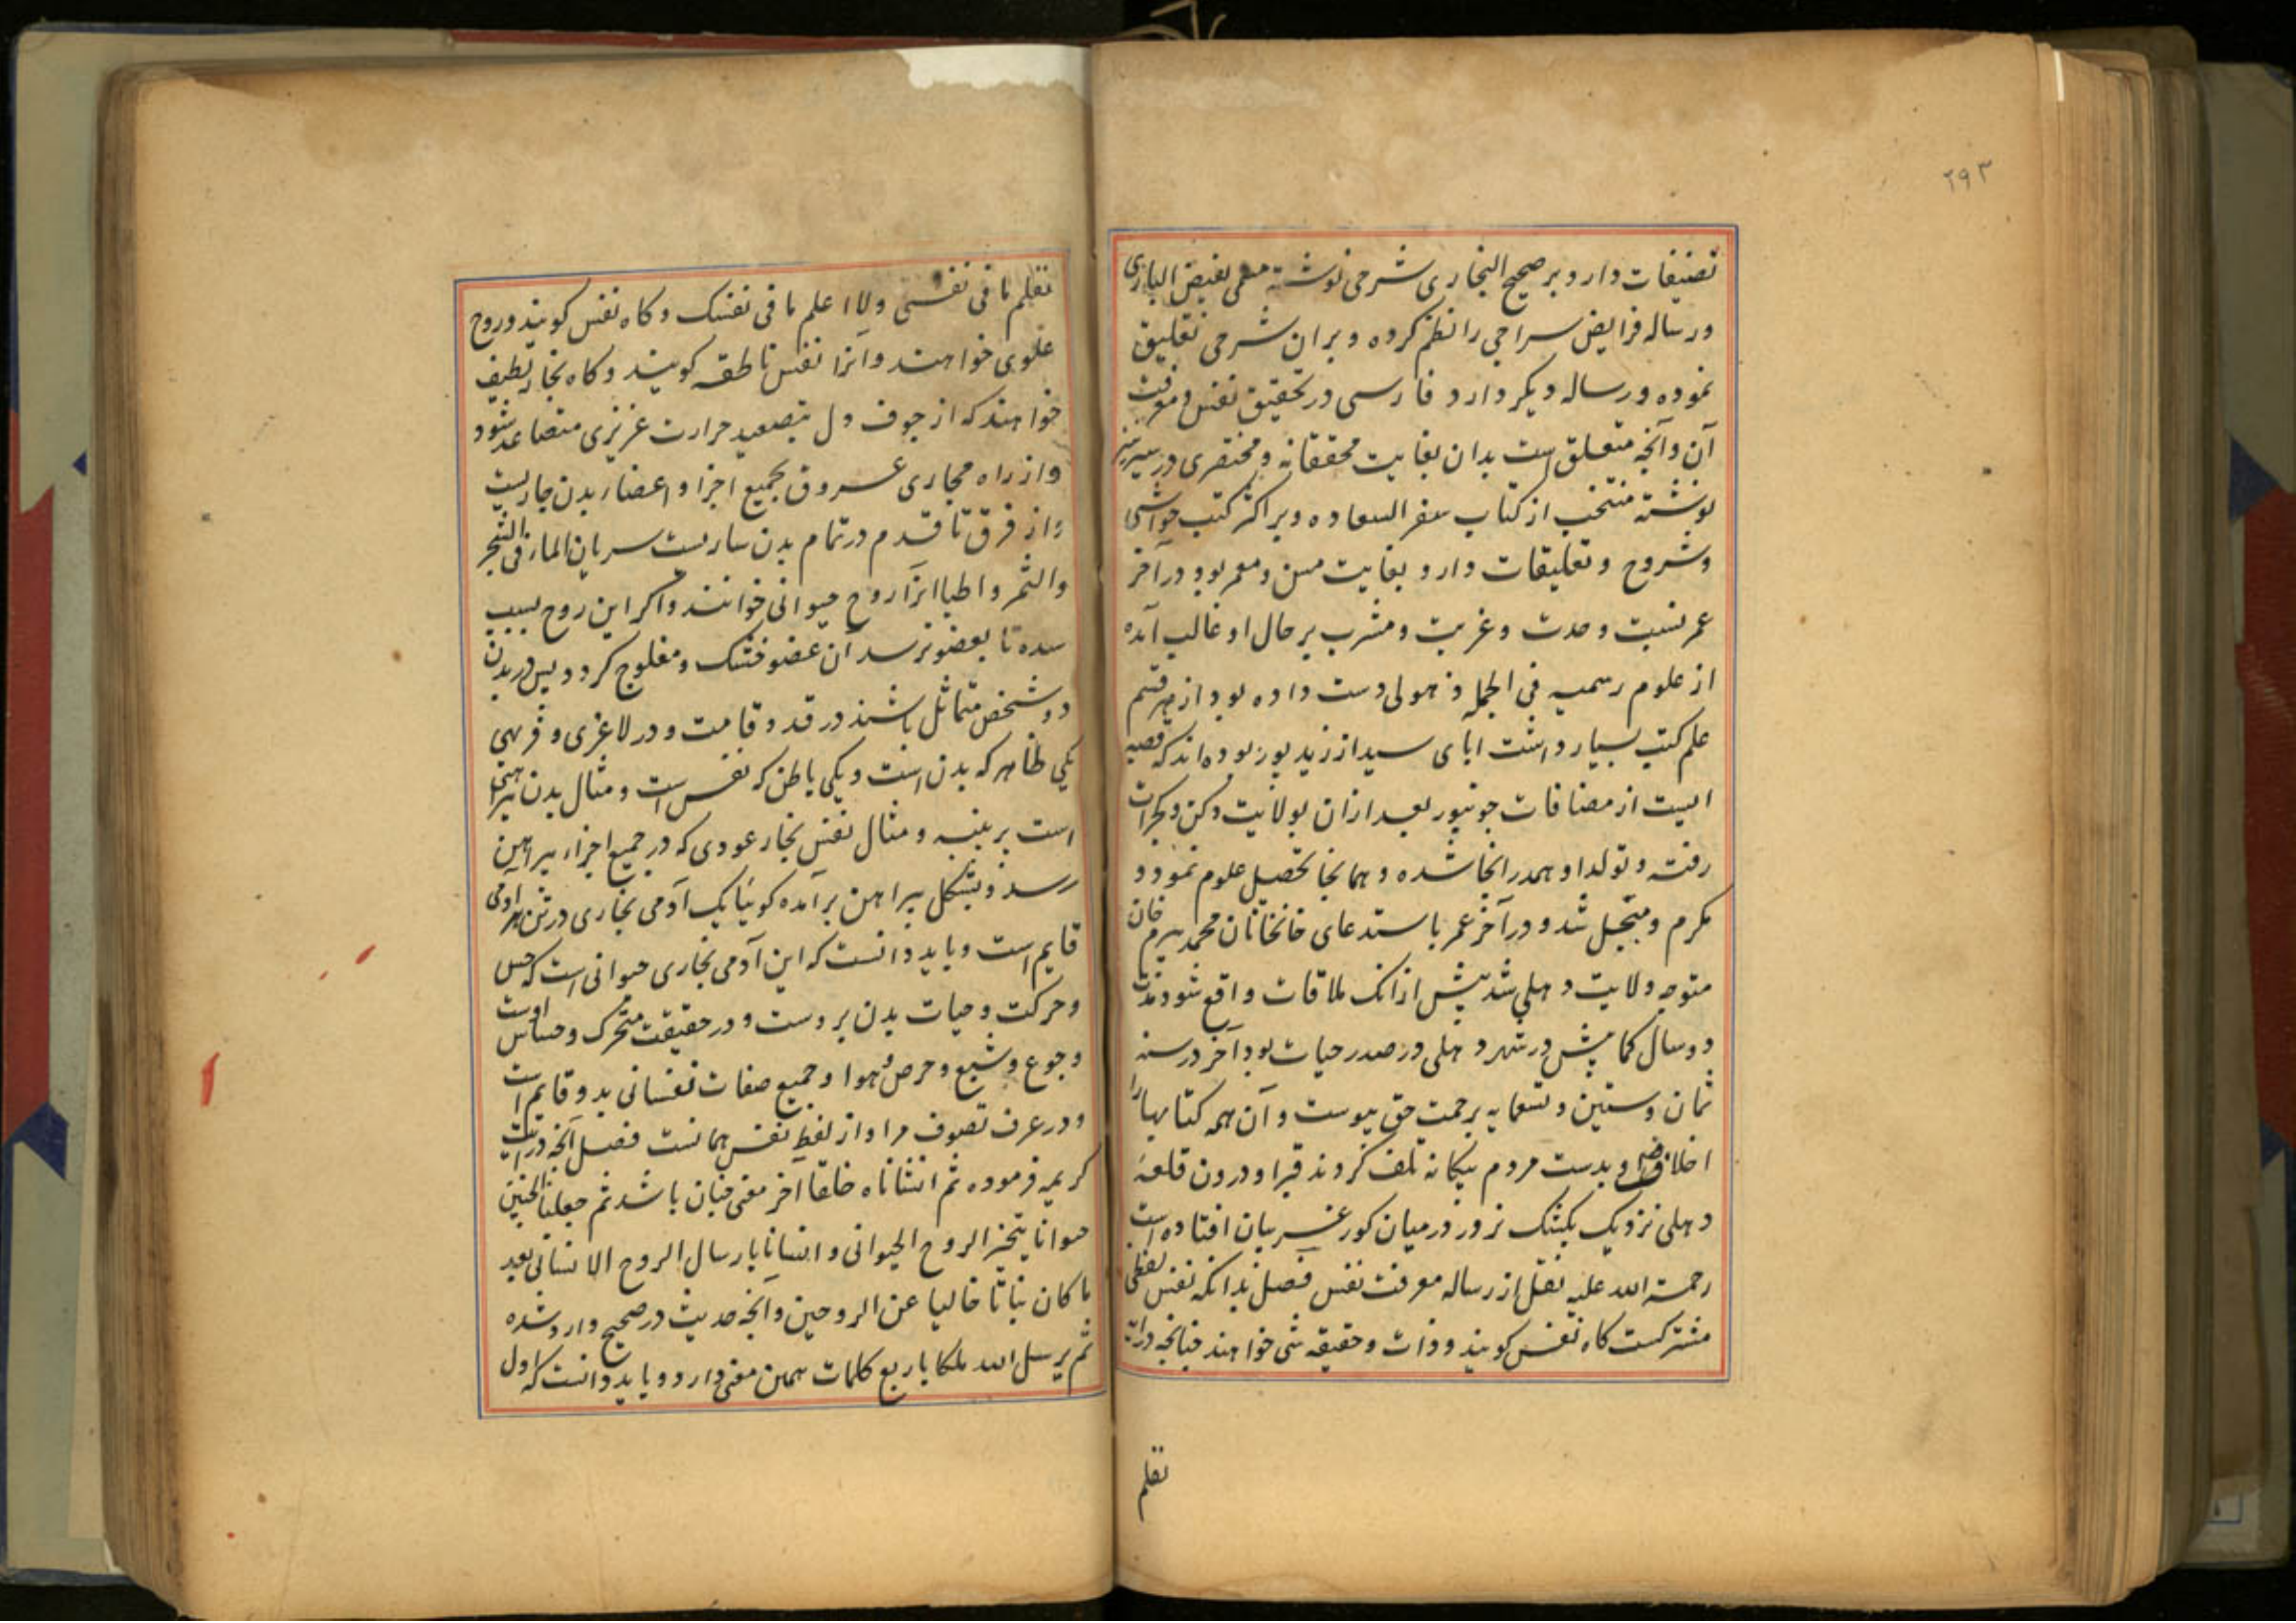 ۲۹۳
تصنیفات دارد و بر صحیح البخاری شرحی نوشته مسمی بفیض الباری
و رساله فرایض سراجی را نظم کرده و بران شرحی تعلیق
نموده و رساله دیکر دارد فارسی در تحقیق نفس و معرفت
آن و آنچه متعلق است بدان بغایت محققانه و مختصری در سیر نیز
نوشته منتخب از کتاب سفر السعاده و بر اکثر کتب حواشی
و شروح و تعلیقات دارد بغایت مسن و معمر بود در آخر
عمر نسبت وحدت و غربت و مشرب بر حال او غالب آمده
از علوم رسمیه فی الجمله ذهولی دست داده بود از هر قسم
علم کتب بسیار داشت ابای سید از زید پور بوده اند که قصبه
ایست از مضافات جونپور بعد ازان بولایت دکن و کجرات
رفته و تولد او همدرانجا شده و همانجا تحصیل علوم نمود و
مکرم و مبجل شد و در آخر عمر باستدعای خانخانان محمد بیرم خان
متوجه ولایت دهلی شد پیش ازانک ملاقات واقع شود مدت
دو سال کمابیش در شهر دهلی در صدر حیات بود آخر در سنه
ثمان و ستین و تسعمایه برحمت حق پیوست و آن همه کتابها را
اخلاف او بدست مردم بیکانه تلف کردند قبر او درون قلعه
دهلی نزدیک بکشک نرور در میان کور غریبان افتاده است
رحمة الله علیه نقل از رساله معرفت نفس فصل بدانکه نفس لفظی
مشترکست کاه نفس کویند و ذات و حقیقه شی خواهند چنانچه در آیت
تعلم
تعلم ما فی نفسی ولا اعلم ما فی نفسک و کاه نفس کویند و روح
علوی خواهند و آنرا نفس ناطقه کویند و کاه بخار لطیف
خواهند که از جوف دل بتصعید حرارت غریزی متصاعد شود
و از راه مجاری عروق بجمیع اجزا و اعضاء بدن جاریست
و از فرق تا قدم در تمام بدن ساریست سریان الماء فی الشجر
والثمر و اطبا انرا روح حیوانی خوانند و اکر این روح بسبب
سده تا بعضو نرسد آن عضو خشک و مفلوج کردد پس در بدن
دو شخص متماثل باشند در قد و قامت و در لاغری و فربهی
یکی ظاهر که بدن است و یکی باطن که نفس است و مثال بدن پیراهنی
است بر پنبه و مثال نفس بخار عودی که در جمیع اجزاء پیراهن
رسد و بشکل پیراهن برآمده کوئیا یک آدمی بخاری در تن هر آدمی
قایم است و باید دانست که این آدمی بخاری حیوانی است که حس
و حرکت و حیات بدن بروست و در حقیقت متحرک و حساس اوست
و جوع و شبع و حرص و هوا و جمیع صفات نفسانی بدو قایم است
و در عرف تصوف مراد از لفظ نفس همانست فصل آنچه در آیت
کریمه فرموده ثم انشاناه خلقا آخر معنی چنان باشد ثم جعلنا الجنین
حیوانا بتبخیر الروح الحیوانی و انسانا بارسال الروح الانسانی بعد
ما کان نباتا خالیا عن الروحین و آنچه حدیث در صحیح وارد شده
ثم یرسل الله ملکا باربع کلمات همین معنی دارد و باید دانست که اول